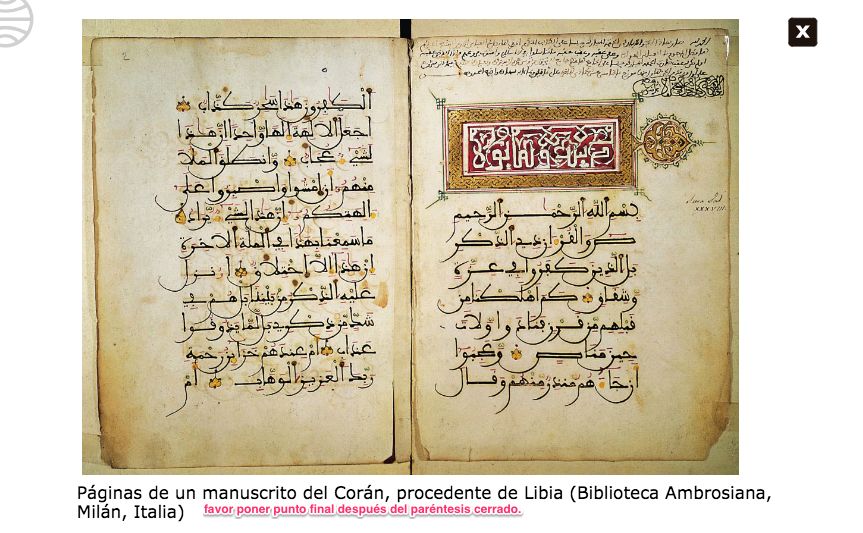 X
بسم الله الرحمن الرحيم
ص والقرءان ذي الذكر
بل الذين كفروا في عزة
وشقاق كم أهلكنا من
قبلهم من قرن فنادوا ولات
حين مناص وعجبوا
أن جاءهم منذر منهم وقال
Sura Sad
XXXVIII.
2
الكفرون هذا سحر كذاب
أجعل الالهة إلها واحدا إن هذا
لشيء عجاب وانطلق الملأ
منهم أن امشوا واصبروا على
ءالهتكم إن هذا لشيء يراد
ما سمعنا بهذا في الملة الاخرة
إن هذا إلا اختلاق أ.نزل
عليه الذكر من بيننا بل هم في
شك من ذكري بل لما يذوقوا
عذاب أم عندهم خزائن رحمة
ربك العزيز الوهاب أم
Páginas de un manuscrito del Corán, procedente de Libia (Biblioteca Ambrosiana,
Milán, Italia) favor poner punto final después del paréntesis cerrado.